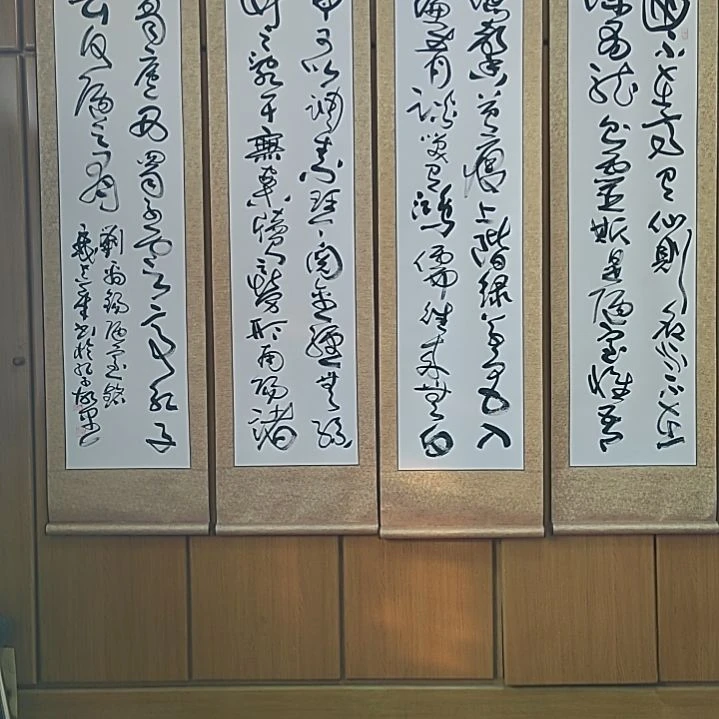 不在高有仙則名水不在
深有龍則靈斯是陋室惟吾
馨苔痕上階綠草色入
簾青談笑有鴻儒往來無白
丁可以調素琴閱金經無絲
竹之亂耳無案牘之勞形南陽諸
葛廬西蜀子雲亭孔子
云何陋之有
劉禹錫陋室銘